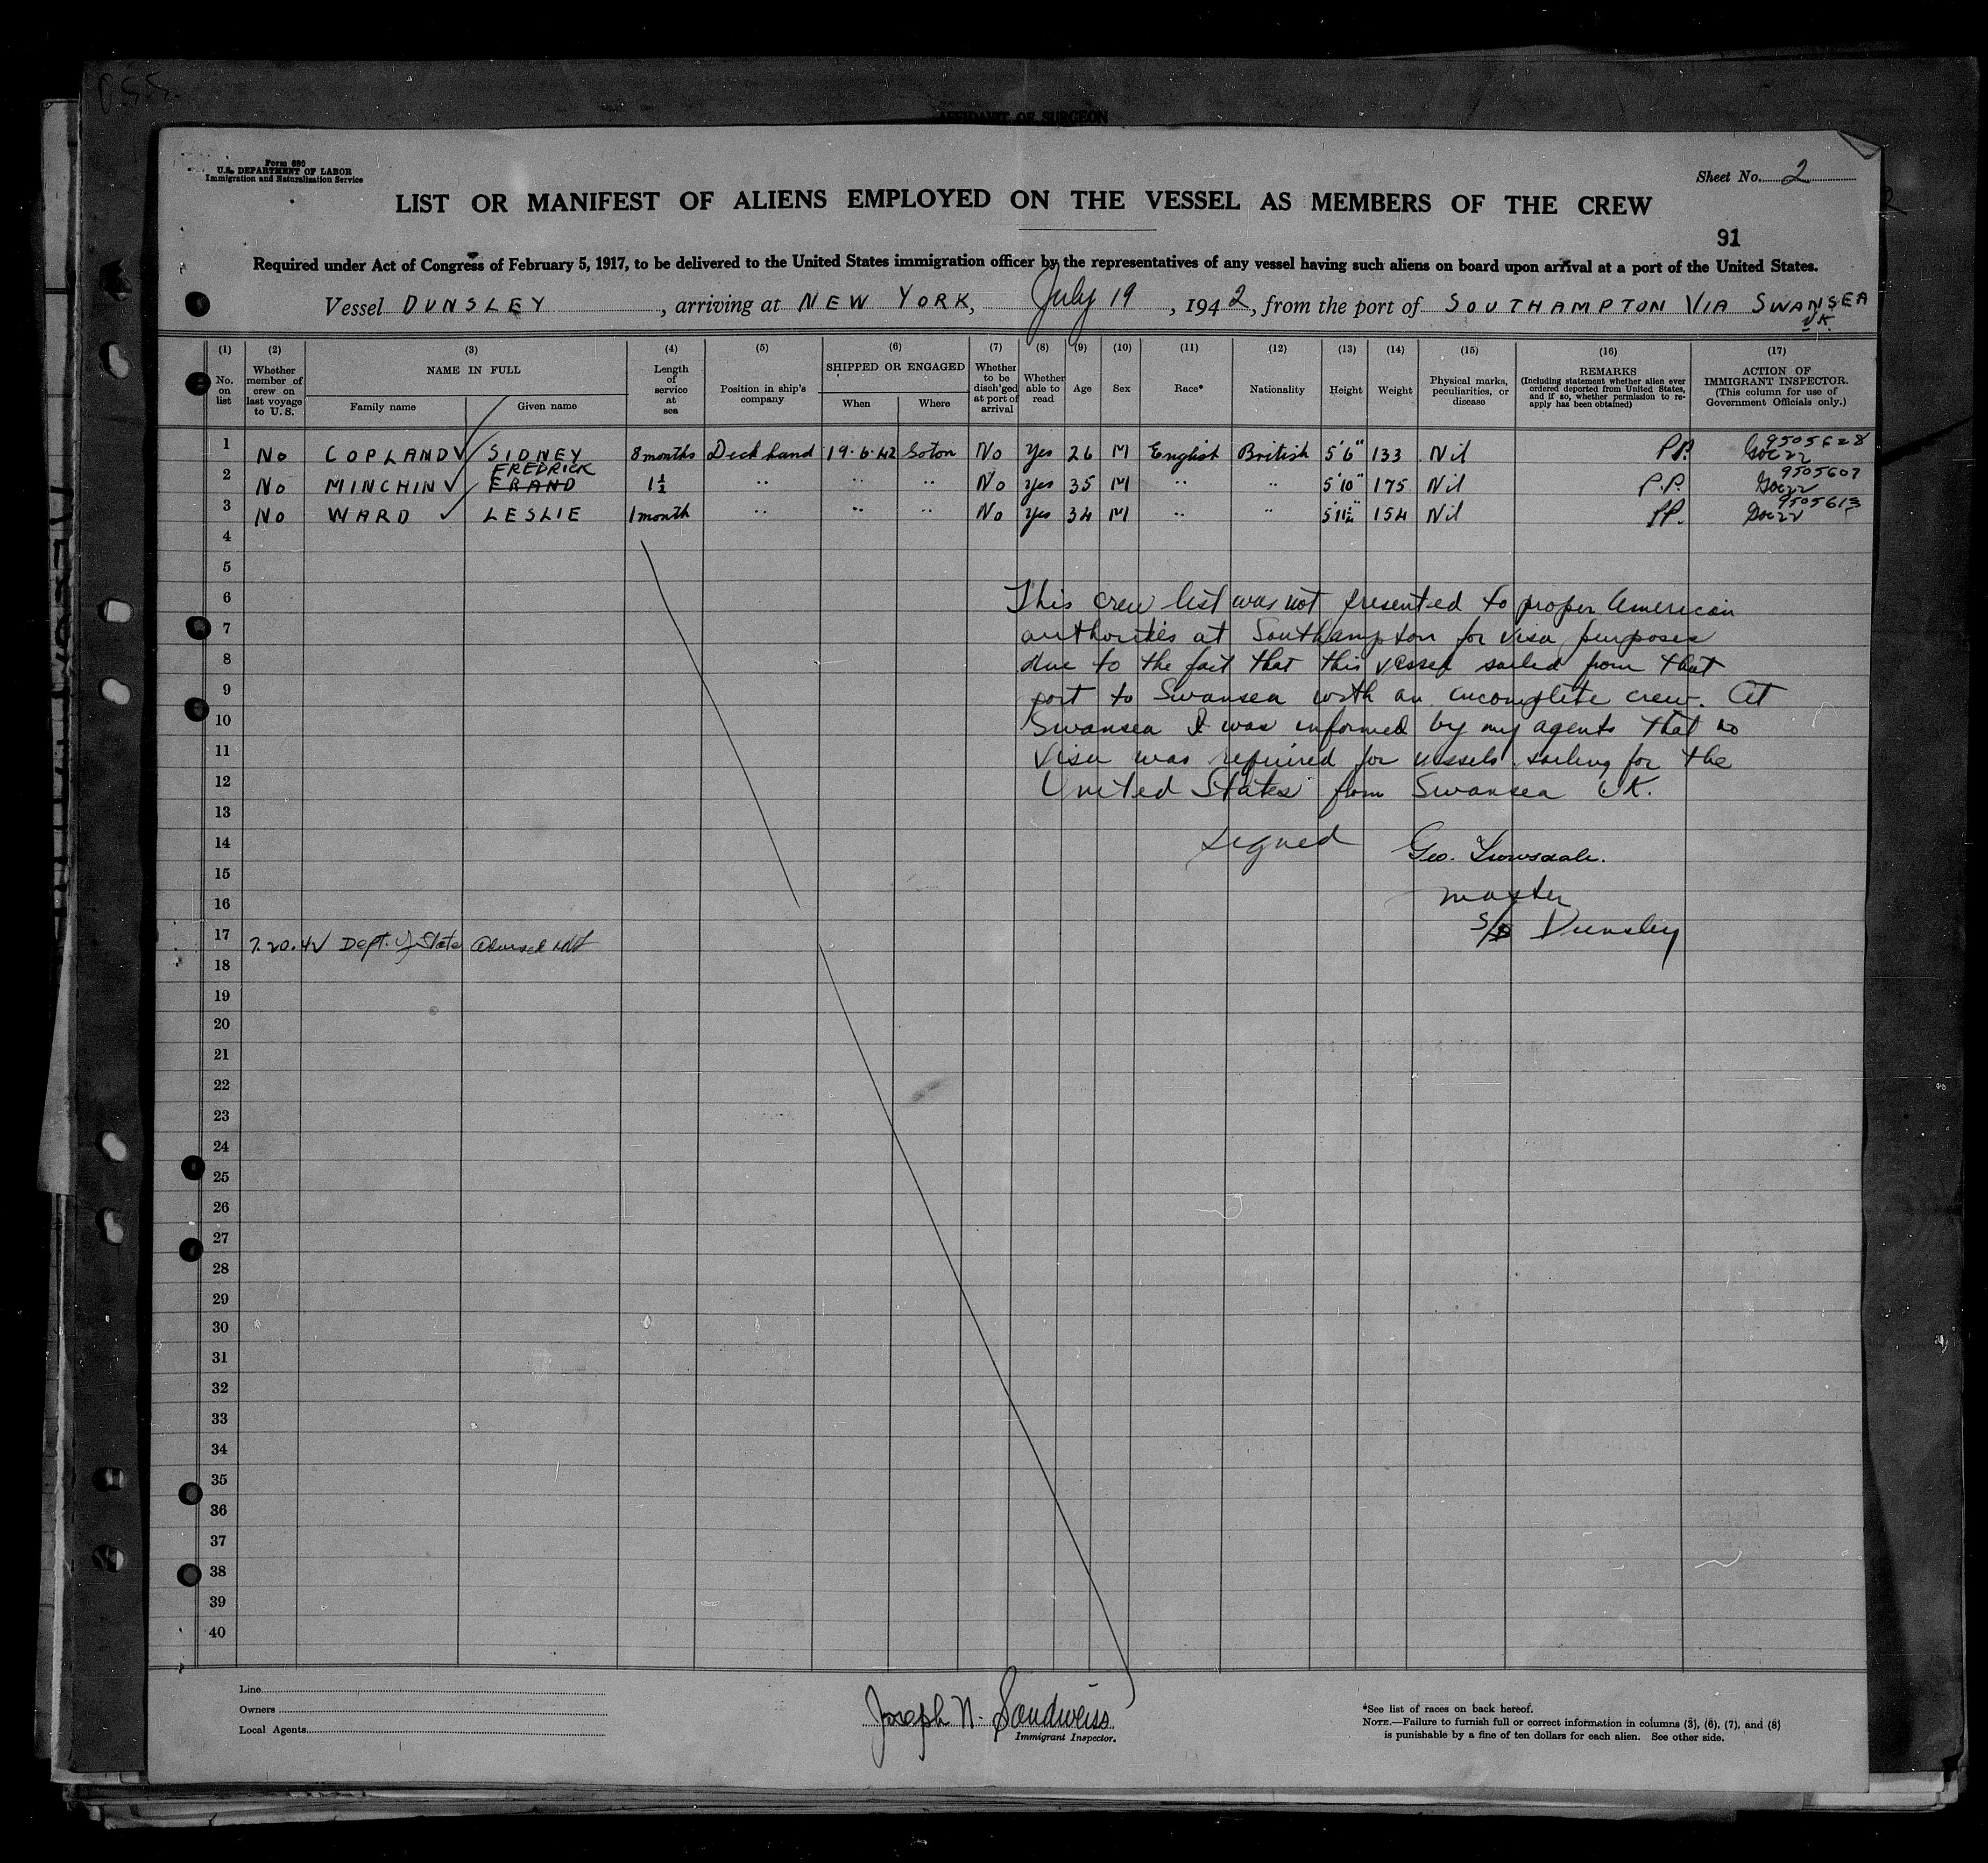 O.S.S.
AFFIDAVIT OF SURGEON
Form 680
U.S. DEPARTMENT OF LABOR
Immigration and Naturalization Service
Sheet No. 2
LIST OR MANIFEST OF ALIENS EMPLOYED ON THE VESSEL AS MEMBERS OF THE CREW
91
Required under Act of Congress of February 5, 1917, to be delivered to the United States immigration officer by the representatives of any vessel having such aliens on board upon arrival at a port of the United States.
Vessel DUNSLEY, arriving at NEW YORK, July 19, 1942, from the port of SOUTHAMPTON VIA SWANSEA
UK.
(1) (2) (3) (4) (5) (6) (7) (8) (9) (10) (11) (12) (13) (14) (15) (16) (17)
No. on list
Whether member of crew on last voyage to U. S.
NAME IN FULL
Family name
Given name
Length of service at sea
Position in ship's company
SHIPPED OR ENGAGED
When
Where
Whether to be disch'ged at port of arrival
Whether able to read
Age
Sex
Race*
Nationality
Height
Weight
Physical marks, peculiarities, or disease
REMARKS
(Including statement whether alien ever ordered deported from United States, and if so, whether permission to reapply has been obtained)
ACTION OF IMMIGRANT INSPECTOR.
(This column for use of Government Officials only.)
9505628
1 No COPLAND SIDNEY 8 months Deck hand 19.6.42 Soton No Yes 26 M English British 5'6" 133 Nil P.P.
FREDRICK 9505607
2 No MINCHIN ERAND 1½ " " " No Yes 35 M " " 5'10" 175 Nil P.P.
9505613
3 No WARD LESLIE 1 month " " " No Yes 34 M " " 5'11½" 154 Nil P.P.
4
5
6 This crew list was not presented to proper American
7 authorities at Southampton for visa purposes
8 due to the fact that this vessel sailed from that
9 port to Swansea with an incomplete crew. At
10 Swansea I was informed by my agents that no
11 visa was required for vessels sailing for the
12 United States from Swansea UK.
13
14 signed Geo.
15
16 master
17 7.20.42 Dept. of State advised S/S Dunsley
18
19
20
21
22
23
24
25
26
27
28
29
30
31
32
33
34
35
36
37
38
39
40
Line
Owners
Local Agents
Joseph N. Sandweiss
Immigrant Inspector.
*See list of races on back hereof.
NOTE.—Failure to furnish full or correct information in columns (3), (6), (7), and (8)
is punishable by a fine of ten dollars for each alien. See other side.